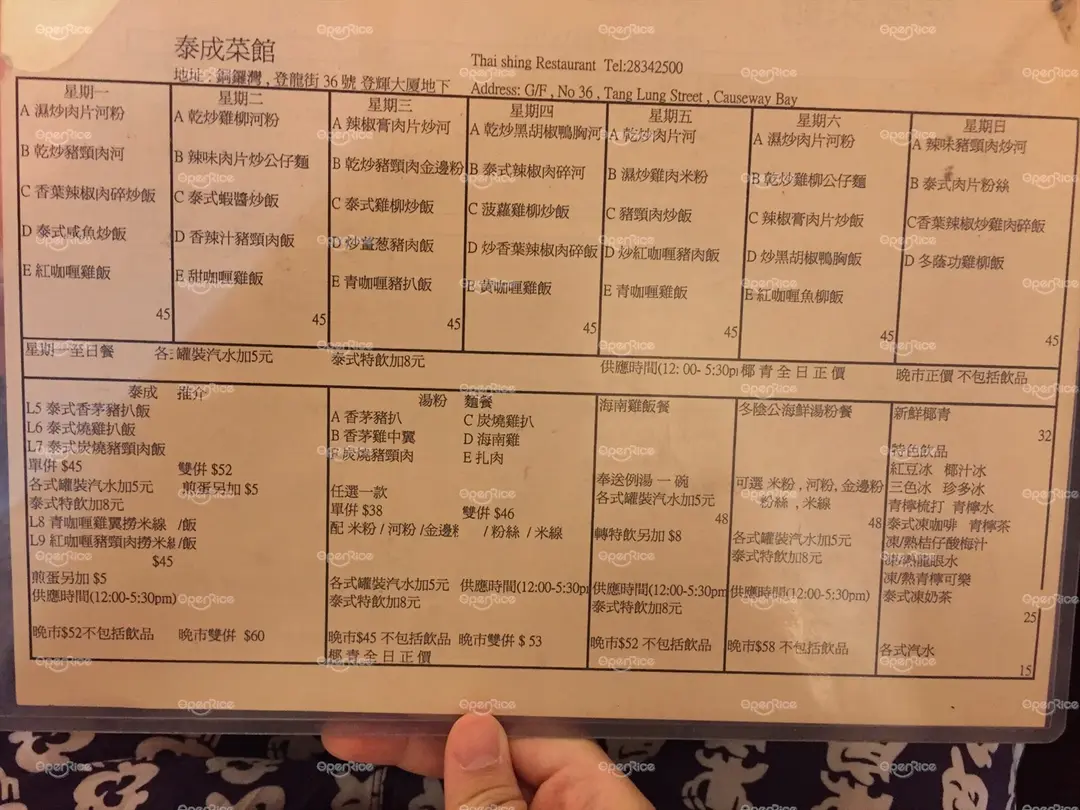 泰成菜館
Thai shing Restaurant Tel:28342500
地址 : 銅鑼灣 , 登龍街 36 號 登輝大廈地下
Address: G/F , No 36 , Tang Lung Street , Causeway Bay
星期一
A 濕炒肉片河粉
B 乾炒豬頸肉河
C 香葉辣椒肉碎炒飯
D 泰式咸魚炒飯
E 紅咖喱雞飯
45
星期二
A 乾炒雞柳河粉
B 辣味肉片炒公仔麵
C 泰式蝦醬炒飯
D 香辣汁豬頸肉飯
E 甜咖喱雞飯
45
星期三
A 辣椒膏肉片炒河
B 乾炒豬頸肉金邊粉
C 泰式雞柳炒飯
D 炒薑葱豬肉飯
E 青咖喱豬扒飯
45
星期四
A 乾炒黑胡椒鴨胸河
B 泰式辣椒肉碎河
C 菠蘿雞柳炒飯
D 炒香葉辣椒肉碎飯
E 黃咖喱雞飯
45
星期五
A 乾炒肉片河
B 濕炒雞肉米粉
C 豬頸肉炒飯
D 炒紅咖喱豬肉飯
E 青咖喱雞飯
45
星期六
A 濕炒肉片河粉
B 乾炒雞柳公仔麵
C 辣椒膏肉片炒飯
D 炒黑胡椒鴨胸飯
E 紅咖喱魚柳飯
45
星期日
A 辣味豬頸肉炒河
B 泰式肉片粉絲
C香葉辣椒炒雞肉碎飯
D 冬蔭功雞柳飯
45
星期一至日餐 各式罐裝汽水加5元 泰式特飲加8元 供應時間(12: 00- 5:30pm 椰 青 全 日 正 價 晚市正價 不包括飲品
泰成 推介
L5 泰式香茅豬扒飯
L6 泰式燒雞扒飯
L7 泰式炭燒豬頸肉飯
單倂 $45 雙倂 $52
各式罐裝汽水加5元 煎蛋另加 $5
泰式特飲加8元
L8 青咖喱雞翼撈米線 /飯
L9 紅咖喱豬頸肉撈米線/飯
$45
煎蛋另加 $5
供應時間(12:00-5:30pm)
晚市$52不包括飲品 晚市雙倂 $60
湯粉 麵餐
A 香茅豬扒 C 炭燒雞扒
B 香茅雞中翼 D 海南雞
F 炭燒豬頸肉 E 扎肉
任選一款
單倂 $38 雙倂 $46
配 米粉 / 河粉 /金邊粉 / 粉絲 / 米線
各式罐裝汽水加5元 供應時間(12:00-5:30pm
泰式特飲加8元
晚市$45 不包括飲品 晚市雙倂 $ 53
椰 青 全 日 正 價
海南雞飯餐
奉送例湯 一 碗
各式罐裝汽水加5元
48
轉特飲另加 $8
供應時間(12:00-5:30pm
泰式特飲加8元
晚市$52 不包括飲品
冬陰公海鮮湯粉餐
可選 米粉 , 河粉, 金邊粉
粉絲 , 米線
48
各式罐裝汽水加5元
泰式特飲加8元
供應時間(12:00-5:30pm)
晚市$58 不包括飲品
新鮮椰青
32
特色飲品
紅豆冰 椰汁冰
三色冰 珍多冰
青檸梳打 青檸水
泰式凍咖啡 青檸茶
凍/熱桔仔酸梅汁
凍/熱龍眼水
凍/熱青檸可樂
泰式凍奶茶
25
各式汽水
15